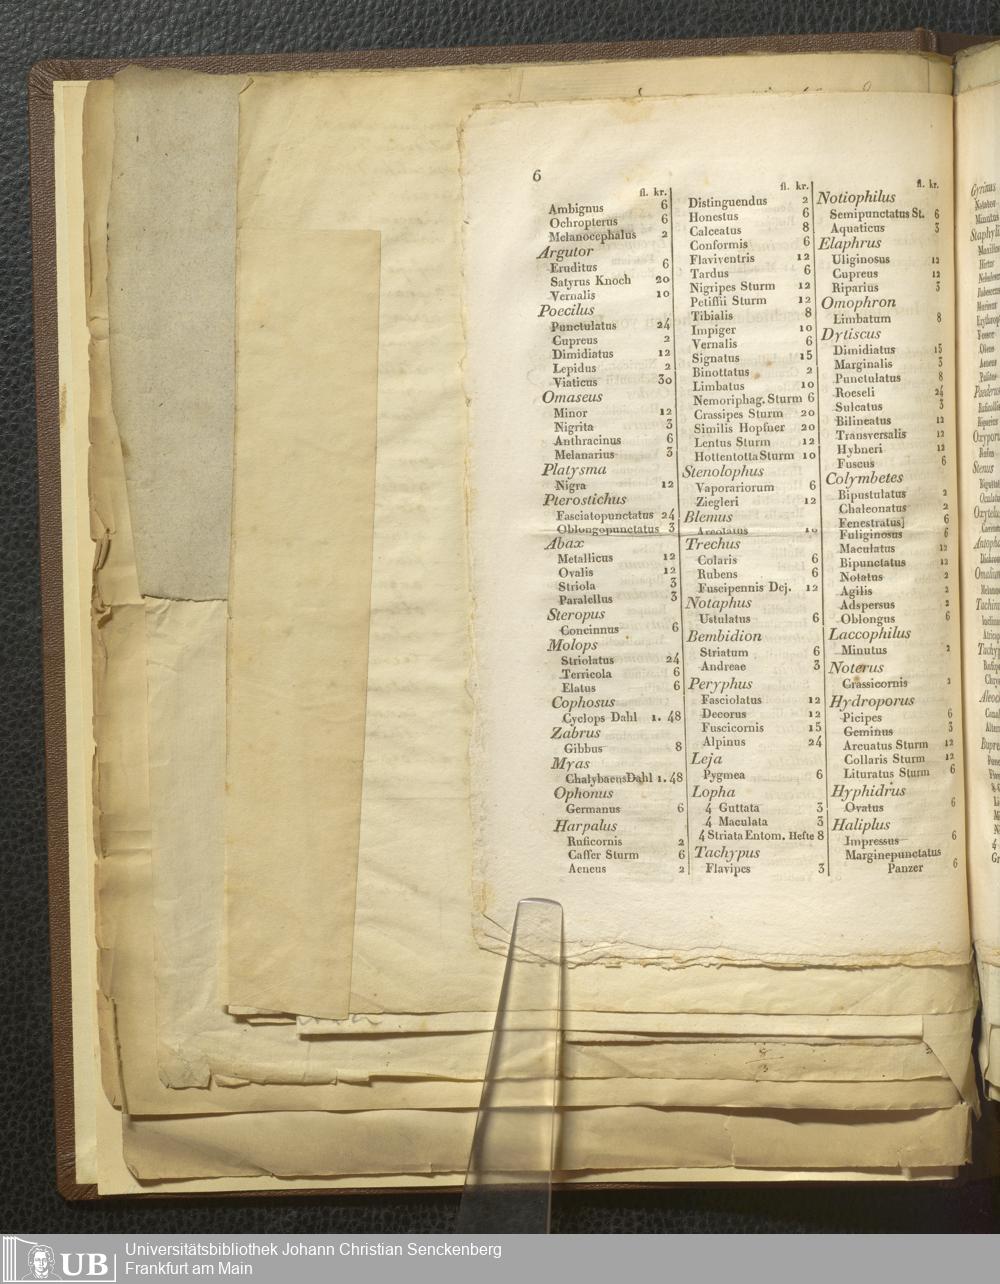 6
fl. kr.
Ambignus 6
Ochropterus 6
Melanocephalus 2
Argutor
Eruditus 6
Satyrus Knoch 20
Vernalis 10
Poecilus
Punctulatus 24
Cupreus 2
Dimidiatus 12
Lepidus 2
Viaticus 30
Omaseus
Minor 12
Nigrita 3
Anthracinus 6
Melanarius 3
Platysma
Nigra 12
Pterostichus
Fasciatopunctatus 24
Oblongopunctatus 3
Abax
Metallicus 12
Ovalis 12
Striola 3
Paralellus 3
Steropus
Concinnus 6
Molops
Striolatus 24
Terricola 6
Elatus 6
Cophosus
Cyclops Dahl 1. 48
Zabrus
Gibbus 8
Myas
Chalybaeus Dahl 1. 48
Ophonus
Germanus 6
Harpalus
Ruficornis 2
Caffer Sturm 6
Aeneus 2
fl. kr.
Distinguendus 2
Honestus 6
Calceatus 8
Conformis 6
Flaviventris 12
Tardus 6
Nigripes Sturm 12
Petiffii Sturm 12
Tibialis 8
Impiger 10
Vernalis 6
Signatus 15
Binottatus 2
Limbatus 10
Nemoriphag. Sturm 6
Crassipes Sturm 20
Similis Hopfner 20
Lentus Sturm 12
Hottentotta Sturm 10
Stenolophus
Vaporariorum 6
Ziegleri 12
Blemus
Areolatus
Trechus
Colaris 6
Rubens 6
Fuscipennis Dej. 12
Notaphus
Ustulatus 6
Bembidion
Striatum 6
Andreae 3
Peryphus
Fasciolatus 12
Decorus 12
Fuscicornis 15
Alpinus 24
Leja
Pygmea 6
Lopha
4 Guttata 3
4 Maculata 3
4 Striata Entom. Hefte 8
Tachypus
Flavipes 3
fl. kr.
Notiophilus
Semipunctatus St. 6
Aquaticus 3
Elaphrus
Uliginosus 12
Cupreus 12
Riparius 3
Omophron
Limbatum 8
Dytiscus
Dimidiatus 15
Marginalis 3
Punctulatus 8
Roeseli 24
Sulcatus 3
Bilineatus 12
Transversalis 12
Hybneri 12
Fuscus 6
Colymbetes
Bipustulatus 2
Chaleonatus 2
Fenestratus] 6
Fuliginosus 6
Maculatus 12
Bipunctatus 12
Notatus 2
Agilis 2
Adspersus 2
Oblongus 6
Laccophilus
Minutus 2
Noterus
Crassicornis 2
Hydroporus
Picipes 6
Geminus 3
Arcuatus Sturm 12
Collaris Sturm 12
Lituratus Sturm 6
Hyphidrus
Ovatus 6
Haliplus
Impressus 6
Marginepunctatus
Panzer 6
Gyrinus
Staphyli
Stenus
UB
Universitätsbibliothek Johann Christian Senckenberg
Frankfurt am Main